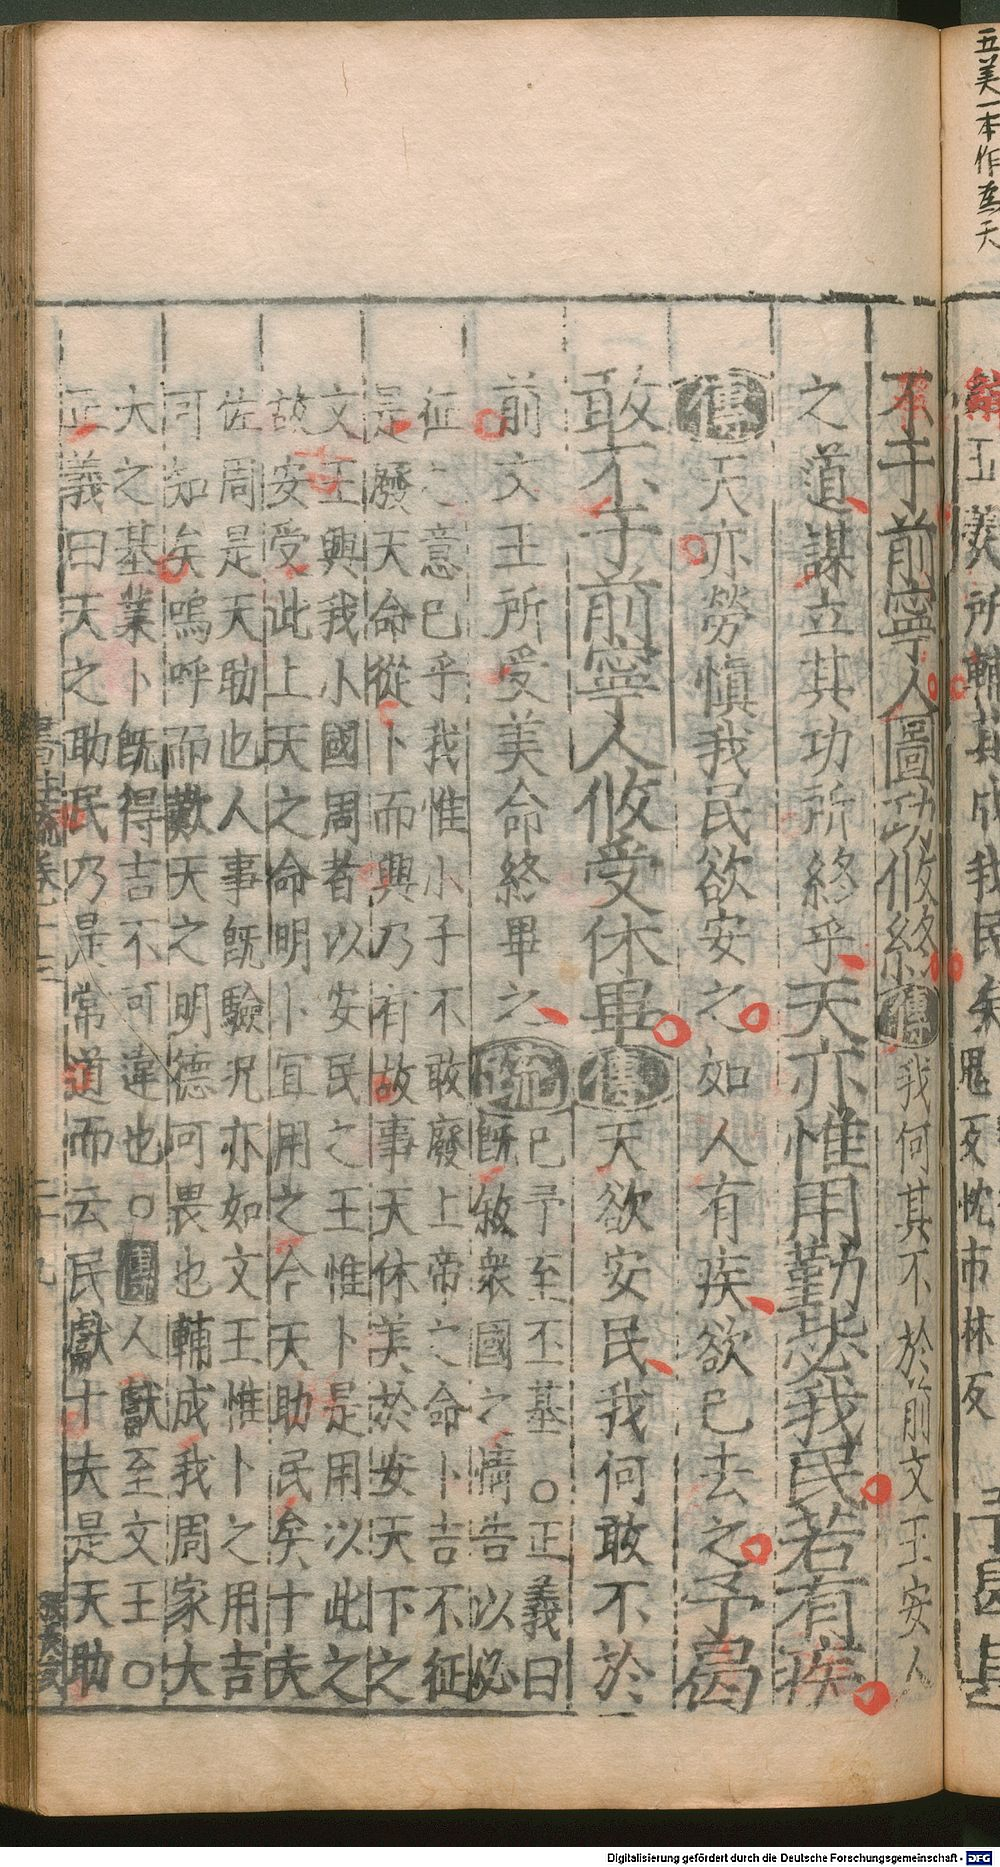 五美一本作無天
不于前寧人圖功攸終傳我何其不於前文王安人
之道謀立其功所終乎天亦惟用勤毖我民若有疾
傳天亦勞慎我民欲安之如人有疾欲已去之予曷
敢不于前寧人攸受休畢傳天欲安民我何敢不於
前文王所受美命終畢之疏
已予至丕基○正義曰
既敘衆國之情告以必
征之意已乎我惟小子不敢廢上帝之命卜吉不征
是廢天命從卜而興乃有故事天休美於安天下之
文王興我小國周者以安民之王惟卜是用以此之
故安受此上天之命明卜宜用之今天助民矣十夫
佐周是天助也人事既驗況亦如文王惟卜之用吉
可知矣嗚呼而歎天之明德可畏也輔成我周家大
大之基業卜既得吉不可違也○傳人獻至文王○
正義曰天之助民乃是常道而云民獻十夫是天助
書註疏卷十三
二十九
Digitalisierung gefördert durch die Deutsche Forschungsgemeinschaft - DFG